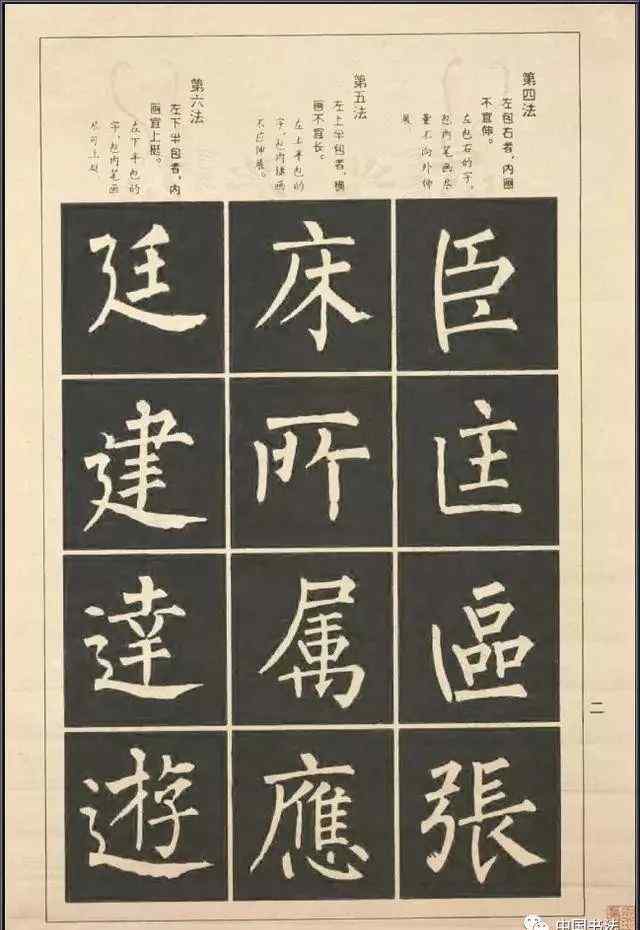 第四法
左包右者，内画
不宜伸。
左包右的字，
包内笔画尽
量不向外伸
展。
臣匡區張
第五法
左上半包者，横
画不宜长。
左上半包的
字，包内横画
不应伸展。
床所属應
第六法
左下半包者，内
画宜上挺。
左下半包的
字，包内笔画
尽可上挺。
廷建達遊
二
中国书法